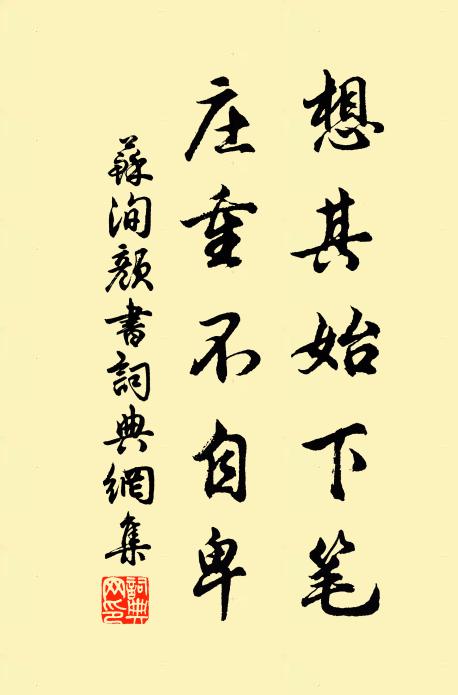 想其始下笔
庄重不自卑
蘇洵顏書詞典網集
詞典網印